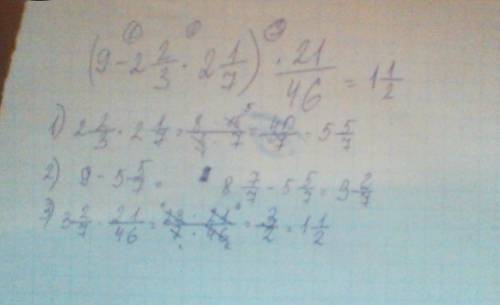 (9 - 2 2/3 · 2 1/7) · 21/46 = 1 1/2
1) 2 2/3 · 2 1/7 = 8/3 · 15/7 = 40/7 = 5 5/7
2) 9 - 5 5/7 = 8 7/7 - 5 5/7 = 3 2/7
3) 3 2/7 · 21/46 = 23/7 · 21/46 = 3/2 = 1 1/2